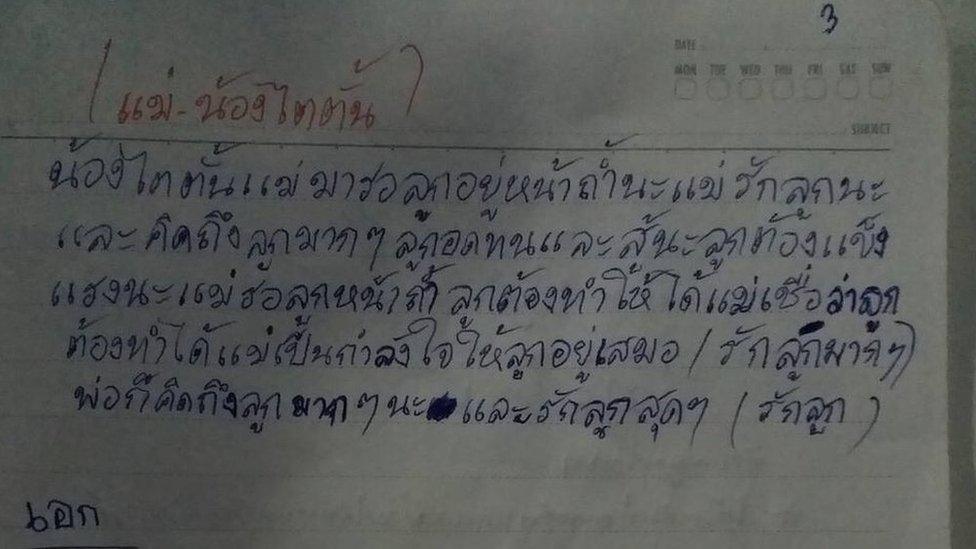 3
DATE
MON TUE WED THU FRI SAT SUN
SUBJECT
(แม่-น้องไตตั้น)
น้องไตตั้นแม่มารอลูกอยู่หน้าถ้ำนะแม่รักลูกนะ
และคิดถึงลูกมากๆลูกอดทนและสู้นะลูกต้องแข็ง
แรงนะแม่รอลูกหน้าถ้ำ ลูกต้องทำให้ได้แม่เชื่อว่าลูก
ต้องทำได้แม่เป็นกำลังใจให้ลูกอยู่เสมอ (รักลูกมากๆ)
พ่อก็คิดถึงลูกมากๆนะ และรักลูกสุดๆ (รักลูก)
เอก